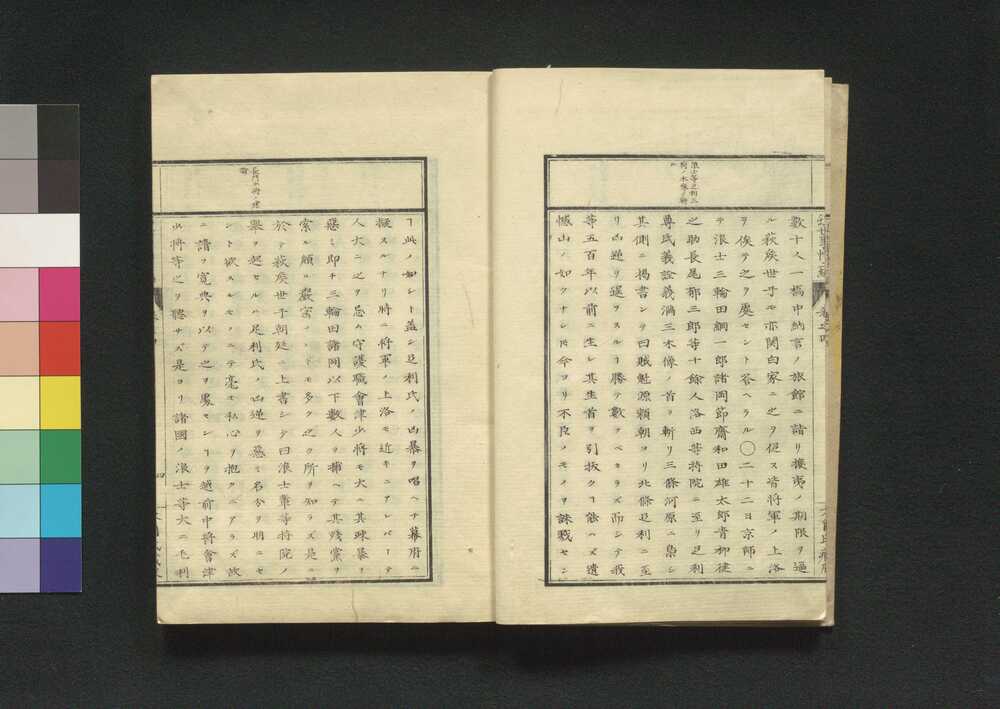 浪士等足利三
將ノ木像ヲ斬
ル
近世事情二編 卷之四
數十人一橋中納言ノ旅館ニ詣リ攘夷ノ期限ヲ逼
ル萩矦世子モ亦関白家ニ之ヲ促ス皆將軍ノ上洛
ヲ俟テ之ヲ奥セント答ヘラル〇二十二日京師ニ
テ浪士三輪田綱一郎諸岡節齋和田雄太郎青柳健
之助長尾郁三郎等十餘人洛西等持院ニ至リ足利
尊氏義詮義満三木像ノ首ヲ斬リ三條河原ニ梟シ
其側ニ掲書シテ曰賊魁源頼朝ヨリ北條足利ニ至
リ凶逆ヲ逞ヲスルヿ勝テ數フベカラズ而シテ我
等五百年以前ニ生レ其生首ヲ引抜クヿ能ハズ遺
憾山ノ如クナシ𪜈今ヨリ不臣ノモノヲ誅戮セン
長門宰相ノ建
言
ヿ此ノ如シト蓋シ足利氏ノ凶暴ヲ唱ヘテ幕府ニ
擬スルナリ時ニ將軍ノ上洛モ近キニアレバ一テ
人大ニ之ヲ忌ム守護職會津少將モ大ニ其疎暴ヲ
惡ミ即チ三輪田諸岡以下數人ヲ捕ヘテ其殘黨ヲ
索ル頗ル嚴密ノヿドモ多ク之ク所ヲ知ラズ是ニ
於テ萩矦世子朝廷ニ上書シテ曰浪士輩等持院ノ
擧ヲ起セルハ足利氏ノ凶逆ヲ惡ミ名分ヲ明ニセ
ント欲スルモノニテ毫モ私心ヲ抱クニアラズ故
ニ請フ寛典ヲ以テ之ヲ處センヿヲ越前中將會津
少將等之ヲ聽サズ是ヨリ諸國ノ浪士等大ニ毛利
四